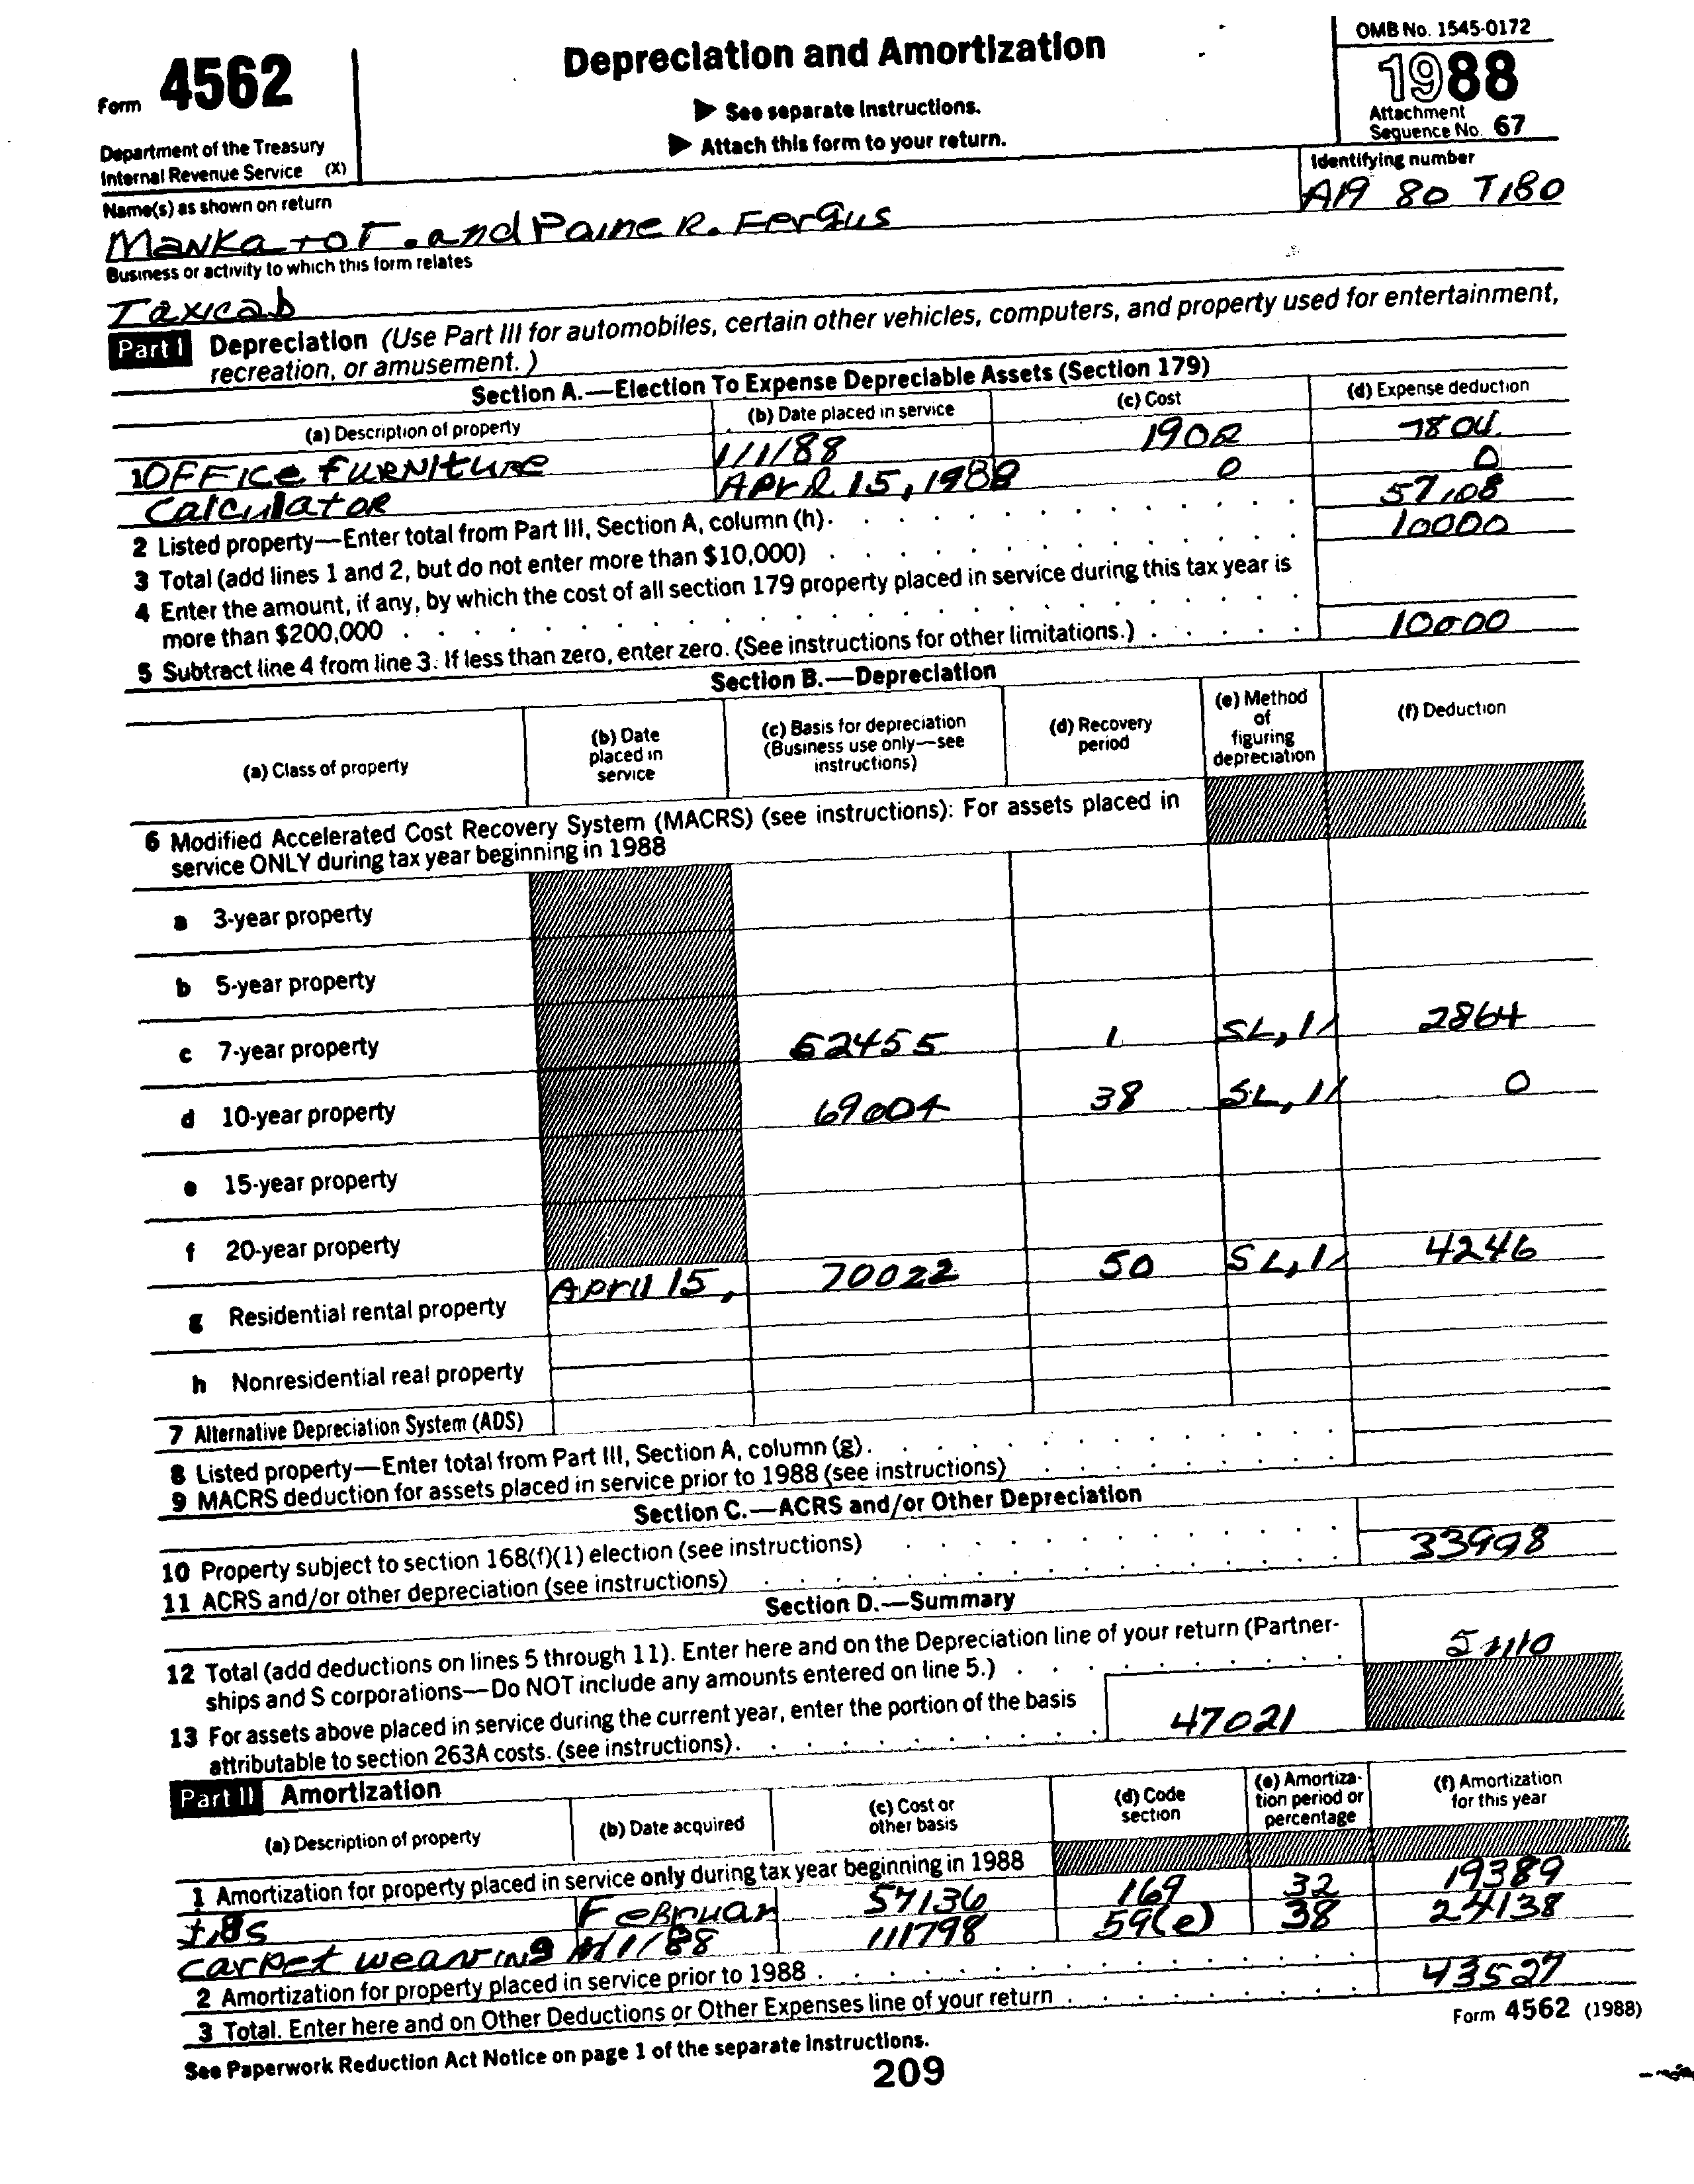 Form 4562
Department of the Treasury
Internal Revenue Service (X)
Depreciation and Amortization
▶ See separate Instructions.
▶ Attach this form to your return.
OMB No. 1545-0172
1988
Attachment
Sequence No. 67
Name(s) as shown on return
Identifying number
Manka and Paine R. Fergus
A19 80 T180
Business or activity to which this form relates
Taxicab
Part I Depreciation (Use Part III for automobiles, certain other vehicles, computers, and property used for entertainment,
recreation, or amusement.)
Section A.—Election To Expense Depreciable Assets (Section 179)
(a) Description of property (b) Date placed in service (c) Cost (d) Expense deduction
1 OFFICE FURNITURE 1/1/88 1902 7804
Calculator April 15, 1988 0 0
2 Listed property—Enter total from Part III, Section A, column (h). 57108
3 Total (add lines 1 and 2, but do not enter more than $10,000) 10000
4 Enter the amount, if any, by which the cost of all section 179 property placed in service during this tax year is
more than $200,000
5 Subtract line 4 from line 3. If less than zero, enter zero. (See instructions for other limitations.) 10000
Section B.—Depreciation
(a) Class of property (b) Date placed in service (c) Basis for depreciation (Business use only—see instructions) (d) Recovery period (e) Method of figuring depreciation (f) Deduction
6 Modified Accelerated Cost Recovery System (MACRS) (see instructions): For assets placed in
service ONLY during tax year beginning in 1988
a 3-year property
b 5-year property
c 7-year property 52455 1 SL, 1/ 2864
d 10-year property 69004 38 SL, 1/ 0
e 15-year property
f 20-year property
g Residential rental property April 15, 70022 50 SL, 1/ 4246
h Nonresidential real property
7 Alternative Depreciation System (ADS)
8 Listed property—Enter total from Part III, Section A, column (g).
9 MACRS deduction for assets placed in service prior to 1988 (see instructions)
Section C.—ACRS and/or Other Depreciation
10 Property subject to section 168(f)(1) election (see instructions) 33998
11 ACRS and/or other depreciation (see instructions)
Section D.—Summary
12 Total (add deductions on lines 5 through 11). Enter here and on the Depreciation line of your return (Partner-
ships and S corporations—Do NOT include any amounts entered on line 5.) 51110
13 For assets above placed in service during the current year, enter the portion of the basis
attributable to section 263A costs. (see instructions). 47021
Part II Amortization
(a) Description of property (b) Date acquired (c) Cost or other basis (d) Code section (e) Amortization period or percentage (f) Amortization for this year
1 Amortization for property placed in service only during tax year beginning in 1988
Februar 57136 169 32 19389
carpet weaving 1/1/88 111798 59(e) 38 24138
2 Amortization for property placed in service prior to 1988
3 Total. Enter here and on Other Deductions or Other Expenses line of your return 43527
See Paperwork Reduction Act Notice on page 1 of the separate instructions.
Form 4562 (1988)
209